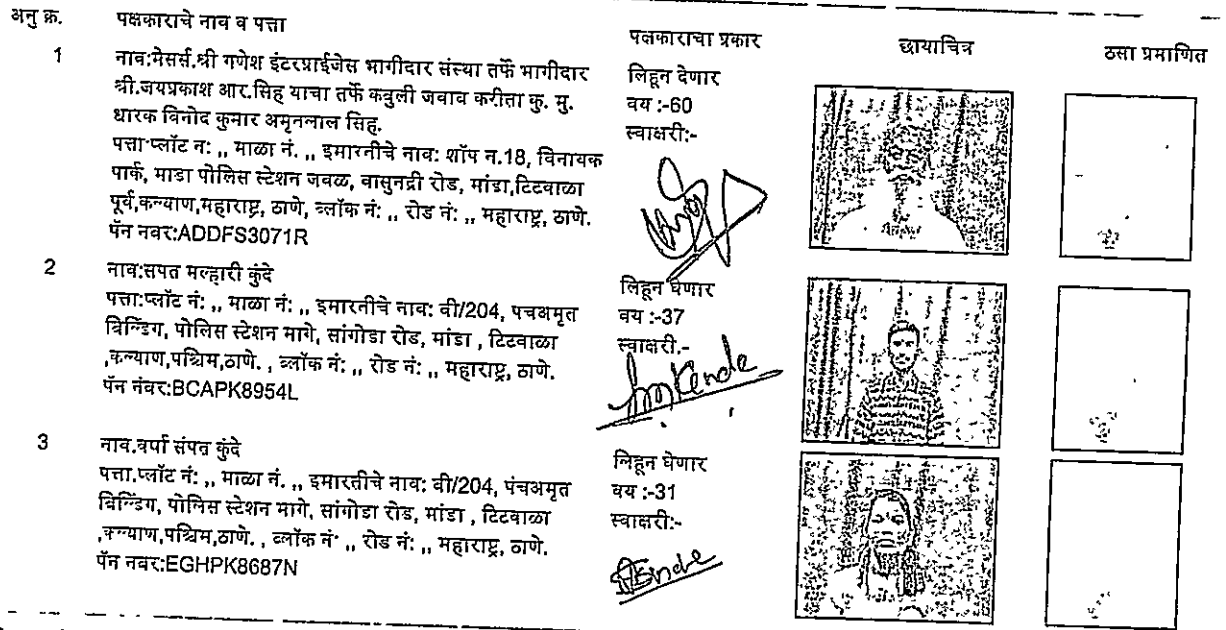 अनु क्र. पक्षकाराचे नाव व पत्ता पक्षकाराचा प्रकार छायाचित्र ठसा प्रमाणित
1 नाव:मेसर्स.श्री गणेश इंटरप्राईजेस भागीदार संस्था तर्फे भागीदार
श्री.जयप्रकाश आर.सिह याचा तर्फे कबुली जवाव करीता कु. मु.
धारक विनोद कुमार अमृनलाल सिह.
पत्ता:प्लॉट न: ,, माळा नं. ,, इमारनीचे नाव: शॉप न.18, विनायक
पार्क, माडा पोलिस स्टेशन जवळ, वासुनद्री रोड, मांडा,टिटवाळा
पूर्व,कल्याण,महाराष्ट्र, ठाणे, ब्लॉक नं: ,, रोड नं: ,, महाराष्ट्र, ठाणे.
पॅन नवर:ADDFS3071R
लिहून देणार
वय :-60
स्वाक्षरी:-
2 नाव:सपत मल्हारी कुंदे
पत्ता:प्लॉट नं: ,, माळा नं: ,, इमारतीचे नाव: वी/204, पचअमृत
बिल्डिंग, पोलिस स्टेशन मागे, सांगोडा रोड, मांडा , टिटवाळा
,कल्याण,पश्चिम,ठाणे. , ब्लॉक नं: ,, रोड नं: ,, महाराष्ट्र, ठाणे.
पॅन नंबर:BCAPK8954L
लिहून घेणार
वय :-37
स्वाक्षरी.-
3 नाव.वर्षा संपत कुंदे
पत्ता.प्लॉट नं: ,, माळा नं. ,, इमारतीचे नाव: वी/204, पंचअमृत
बिल्डिंग, पोलिस स्टेशन मागे, सांगोडा रोड, मांडा , टिटवाळा
,कल्याण,पश्चिम,ठाणे. , ब्लॉक नं: ,, रोड नं: ,, महाराष्ट्र, ठाणे.
पॅन नवर:EGHPK8687N
लिहून घेणार
वय :-31
स्वाक्षरी:-